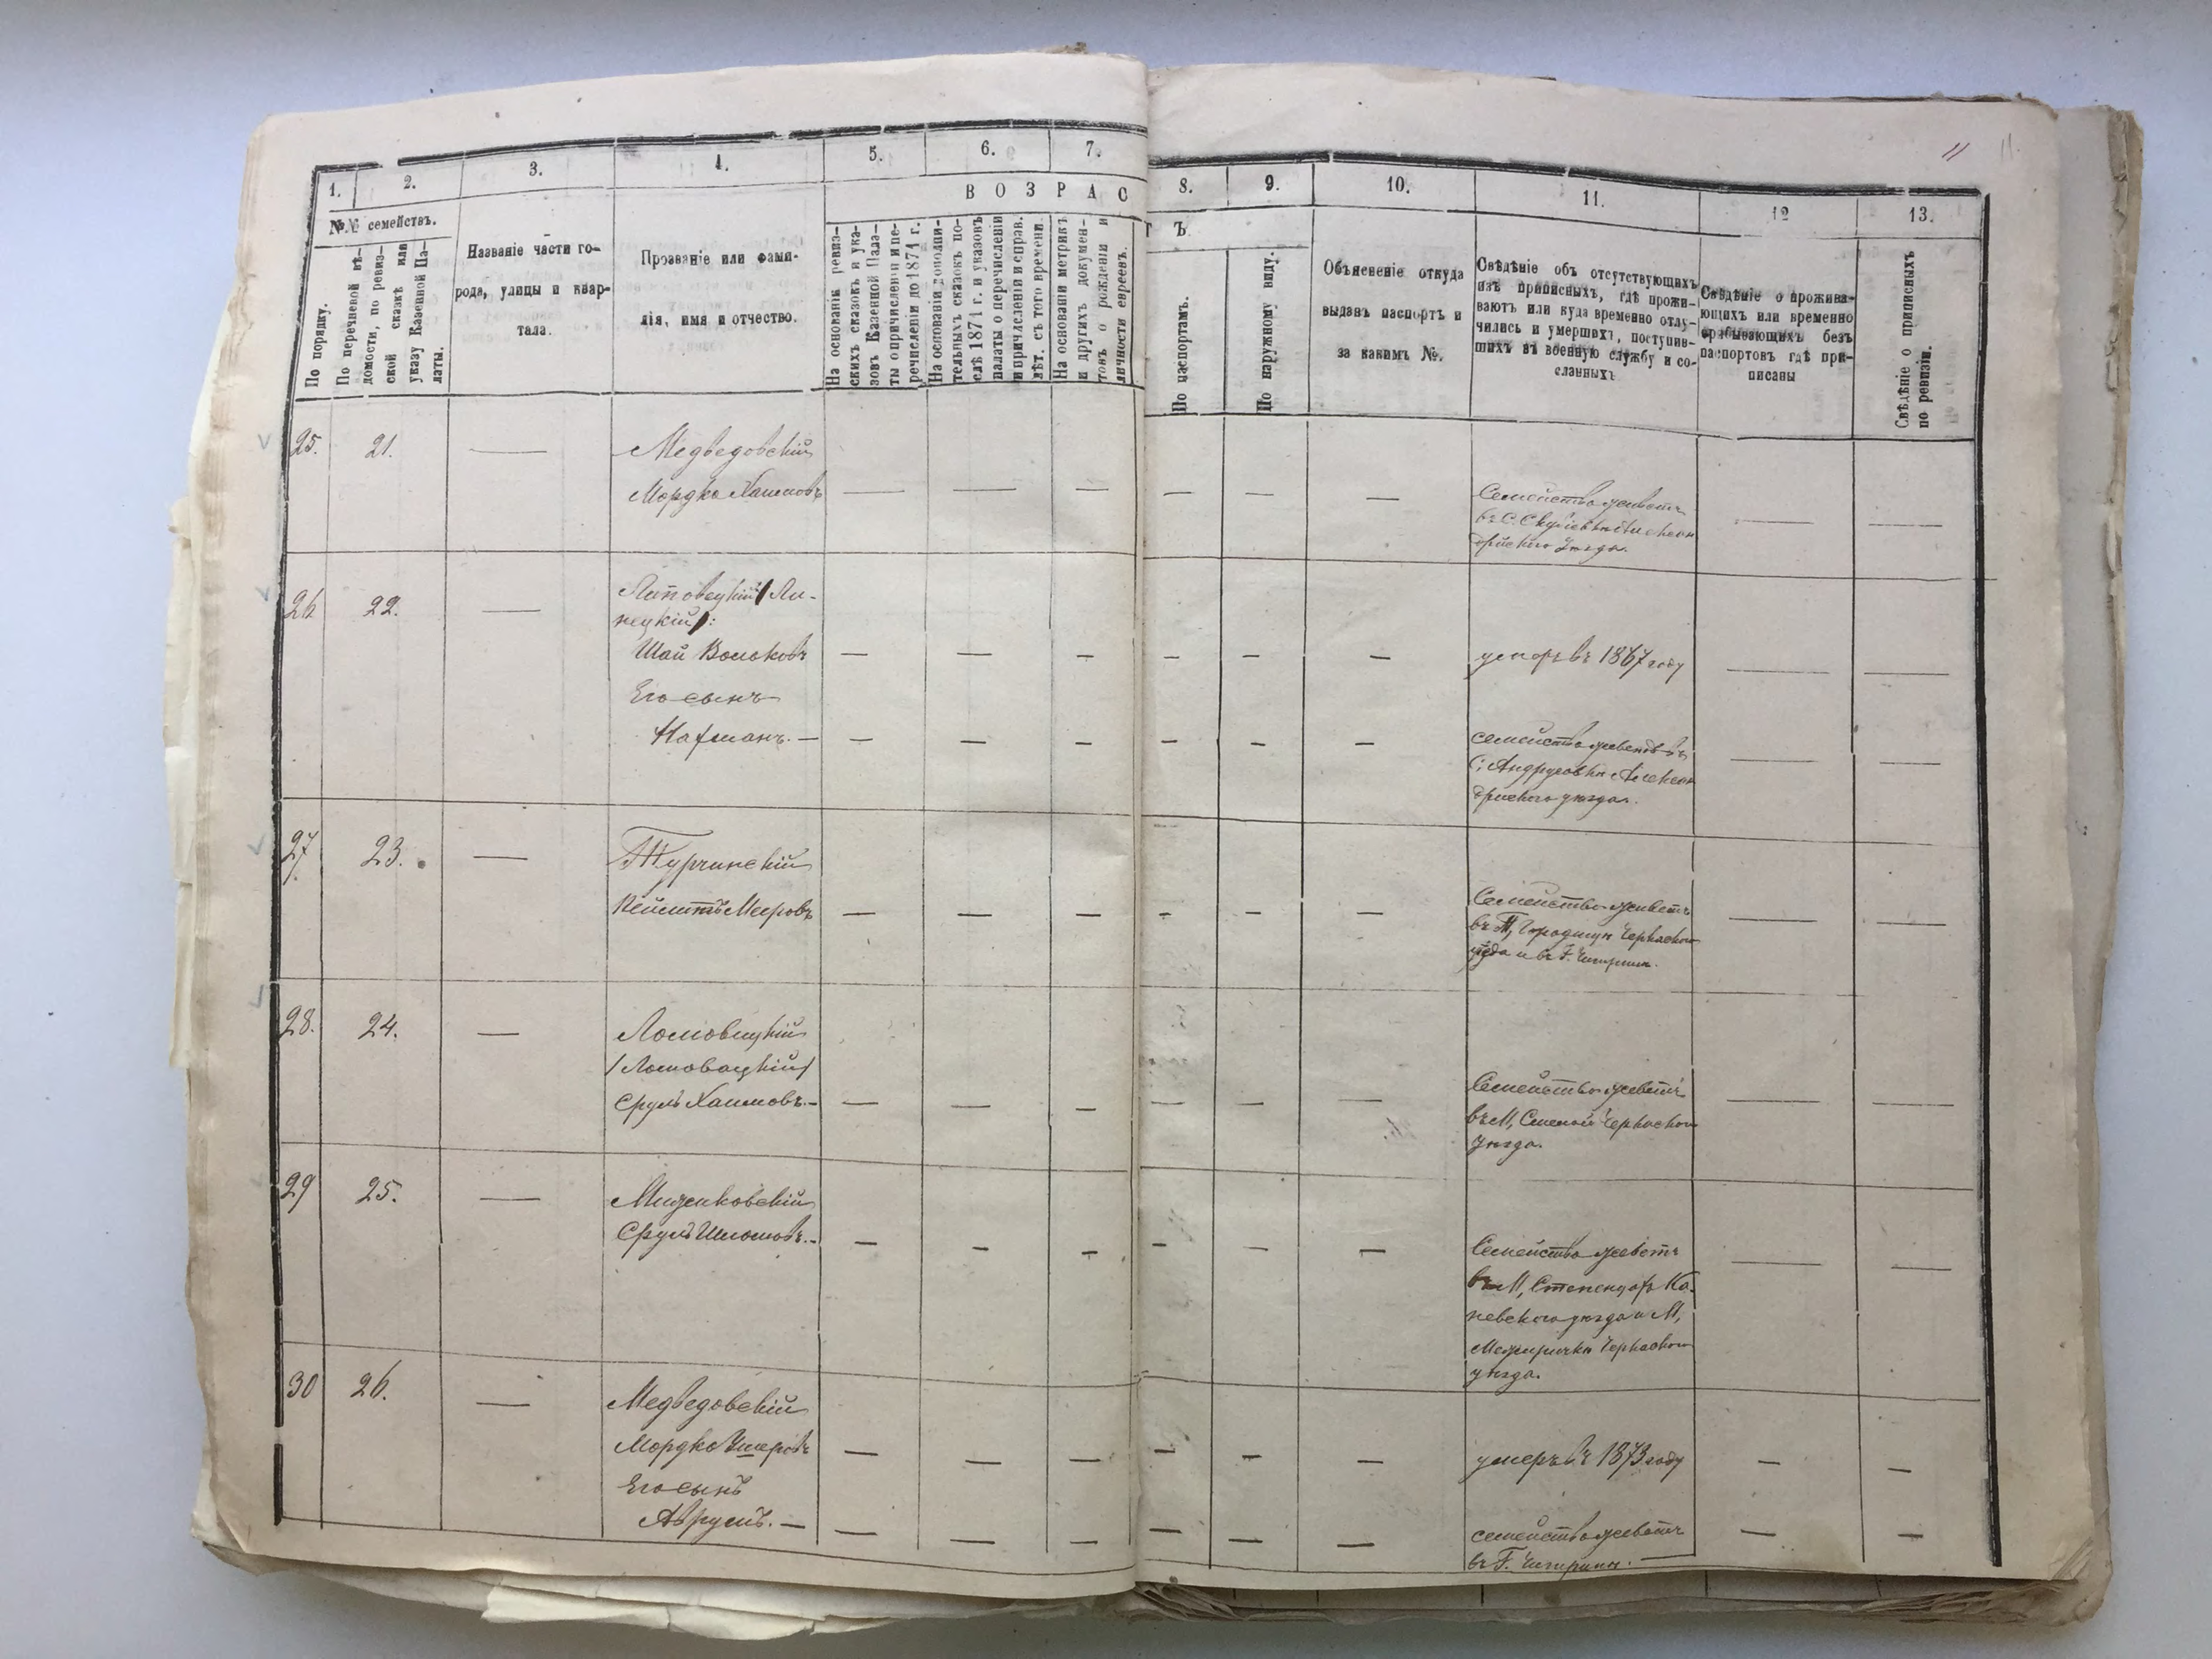 11 11.
1. 2. 3. 4. 5. 6. 7. 8. 9. 10. 11. 12 13.
№№ семействъ.
По порядку.
По перечневой вѣ-
домости, по ревиз-
ской сказкѣ или
указу Казенной Па-
латы.
Названіе части го-
рода, улицы и квар-
тала.
Прозваніе или фами-
лія, имя и отчество.
ВОЗРАС
ТЪ.
На основаніи ревиз-
скихъ сказокъ и ука-
зовъ Казенной Пала-
ты о причисленіи и пе-
речисленіи до 1871 г.
На основаніи дополни-
тельныхъ сказокъ по-
слѣ 1871 г. и указовъ
палаты о перечисленіи
и причисленіи и справ.
лѣт. съ того времени.
На основаніи метрикъ
и другихъ докумен-
товъ о рожденіи и
личности евреевъ.
По паспортамъ.
По наружному виду.
Объясненіе откуда
выданъ паспортъ и
за какимъ №.
Свѣдѣніе объ отсутствующихъ
изъ приписныхъ, гдѣ прожи-
ваютъ или куда временно отлу-
чились и умершихъ, поступив-
шихъ въ военную службу и со-
сланныхъ
Свѣдѣніе о прожива-
ющихъ или временно
пребывающихъ безъ
паспортовъ гдѣ при-
писаны
Свѣдѣніе о приписныхъ
по ревизіи.
25. 21. — Медведовскій
Мордко Хаимовъ — — — — — — Семейство живетъ
въ С. Александ
рійскаго Уѣзда. — —
26 22. — Липовецкій / Ли-
нецкій /:
Шая Волоковъ — — — — — — умеръ въ 1867 году — —
Его сынъ
Нахманъ. — — — — — — — семейство живетъ въ
С. Андрусовкѣ Алексан
дрійскаго уѣзда. — —
27. 23. — Турчинскій
Мееровъ — — — — — — Семейство живетъ
въ М, Городищѣ Черкаскаго
уѣзда и въ Г. Чигиринѣ. — —
28. 24. — Ломовицкій
/Ломовацкій/
Сруль Хаимовъ. — — — — — — — Семейство живетъ
въ М, Смелой Черкаскаго
Уѣзда. — —
29 25. — Мизенковскій
Сруль Шломовъ. — — — — — — — Семейство живетъ
въ М, Степенцахъ Ка-
невскаго уѣзда и М,
Межиричкѣ Черкаскаго
уѣзда. — —
30 26. — Медведовскій
Мордко Ушеровъ — — — — — — умеръ въ 1873 году — —
Его сынъ
Аврумъ. — — — — — — — семейство живетъ
въ Г. Чигиринѣ. — — —